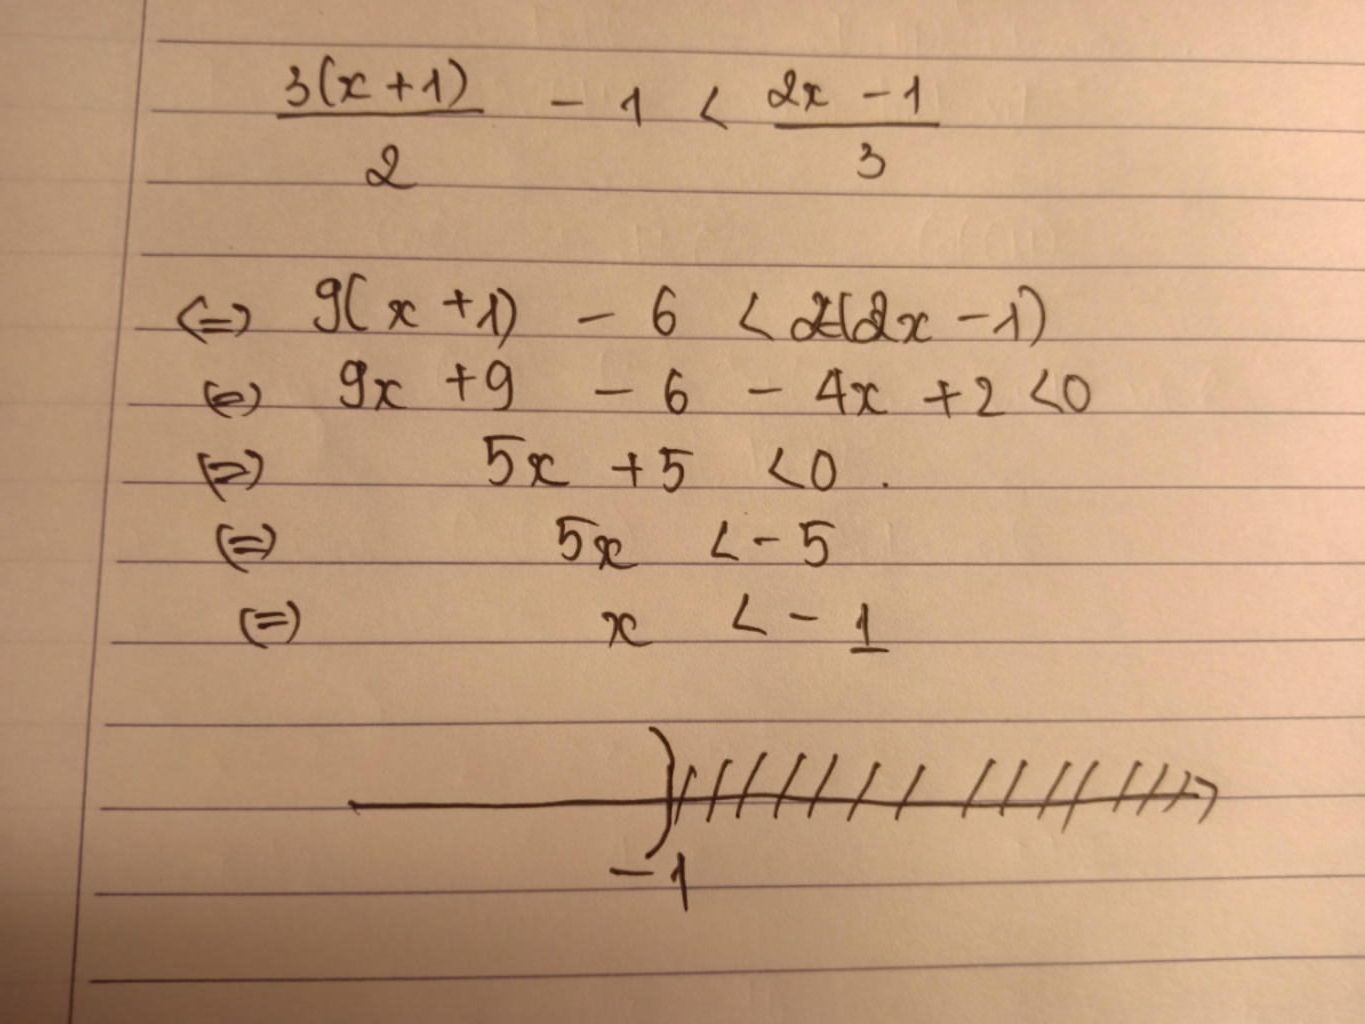 3(x+1)/2 - 1 < 2x - 1/3
<=> 9(x+1) - 6 < 2(2x - 1)
<=> 9x + 9 - 6 - 4x + 2 < 0
<=> 5x + 5 < 0 .
<=> 5x < - 5
<=> x < - 1
-1